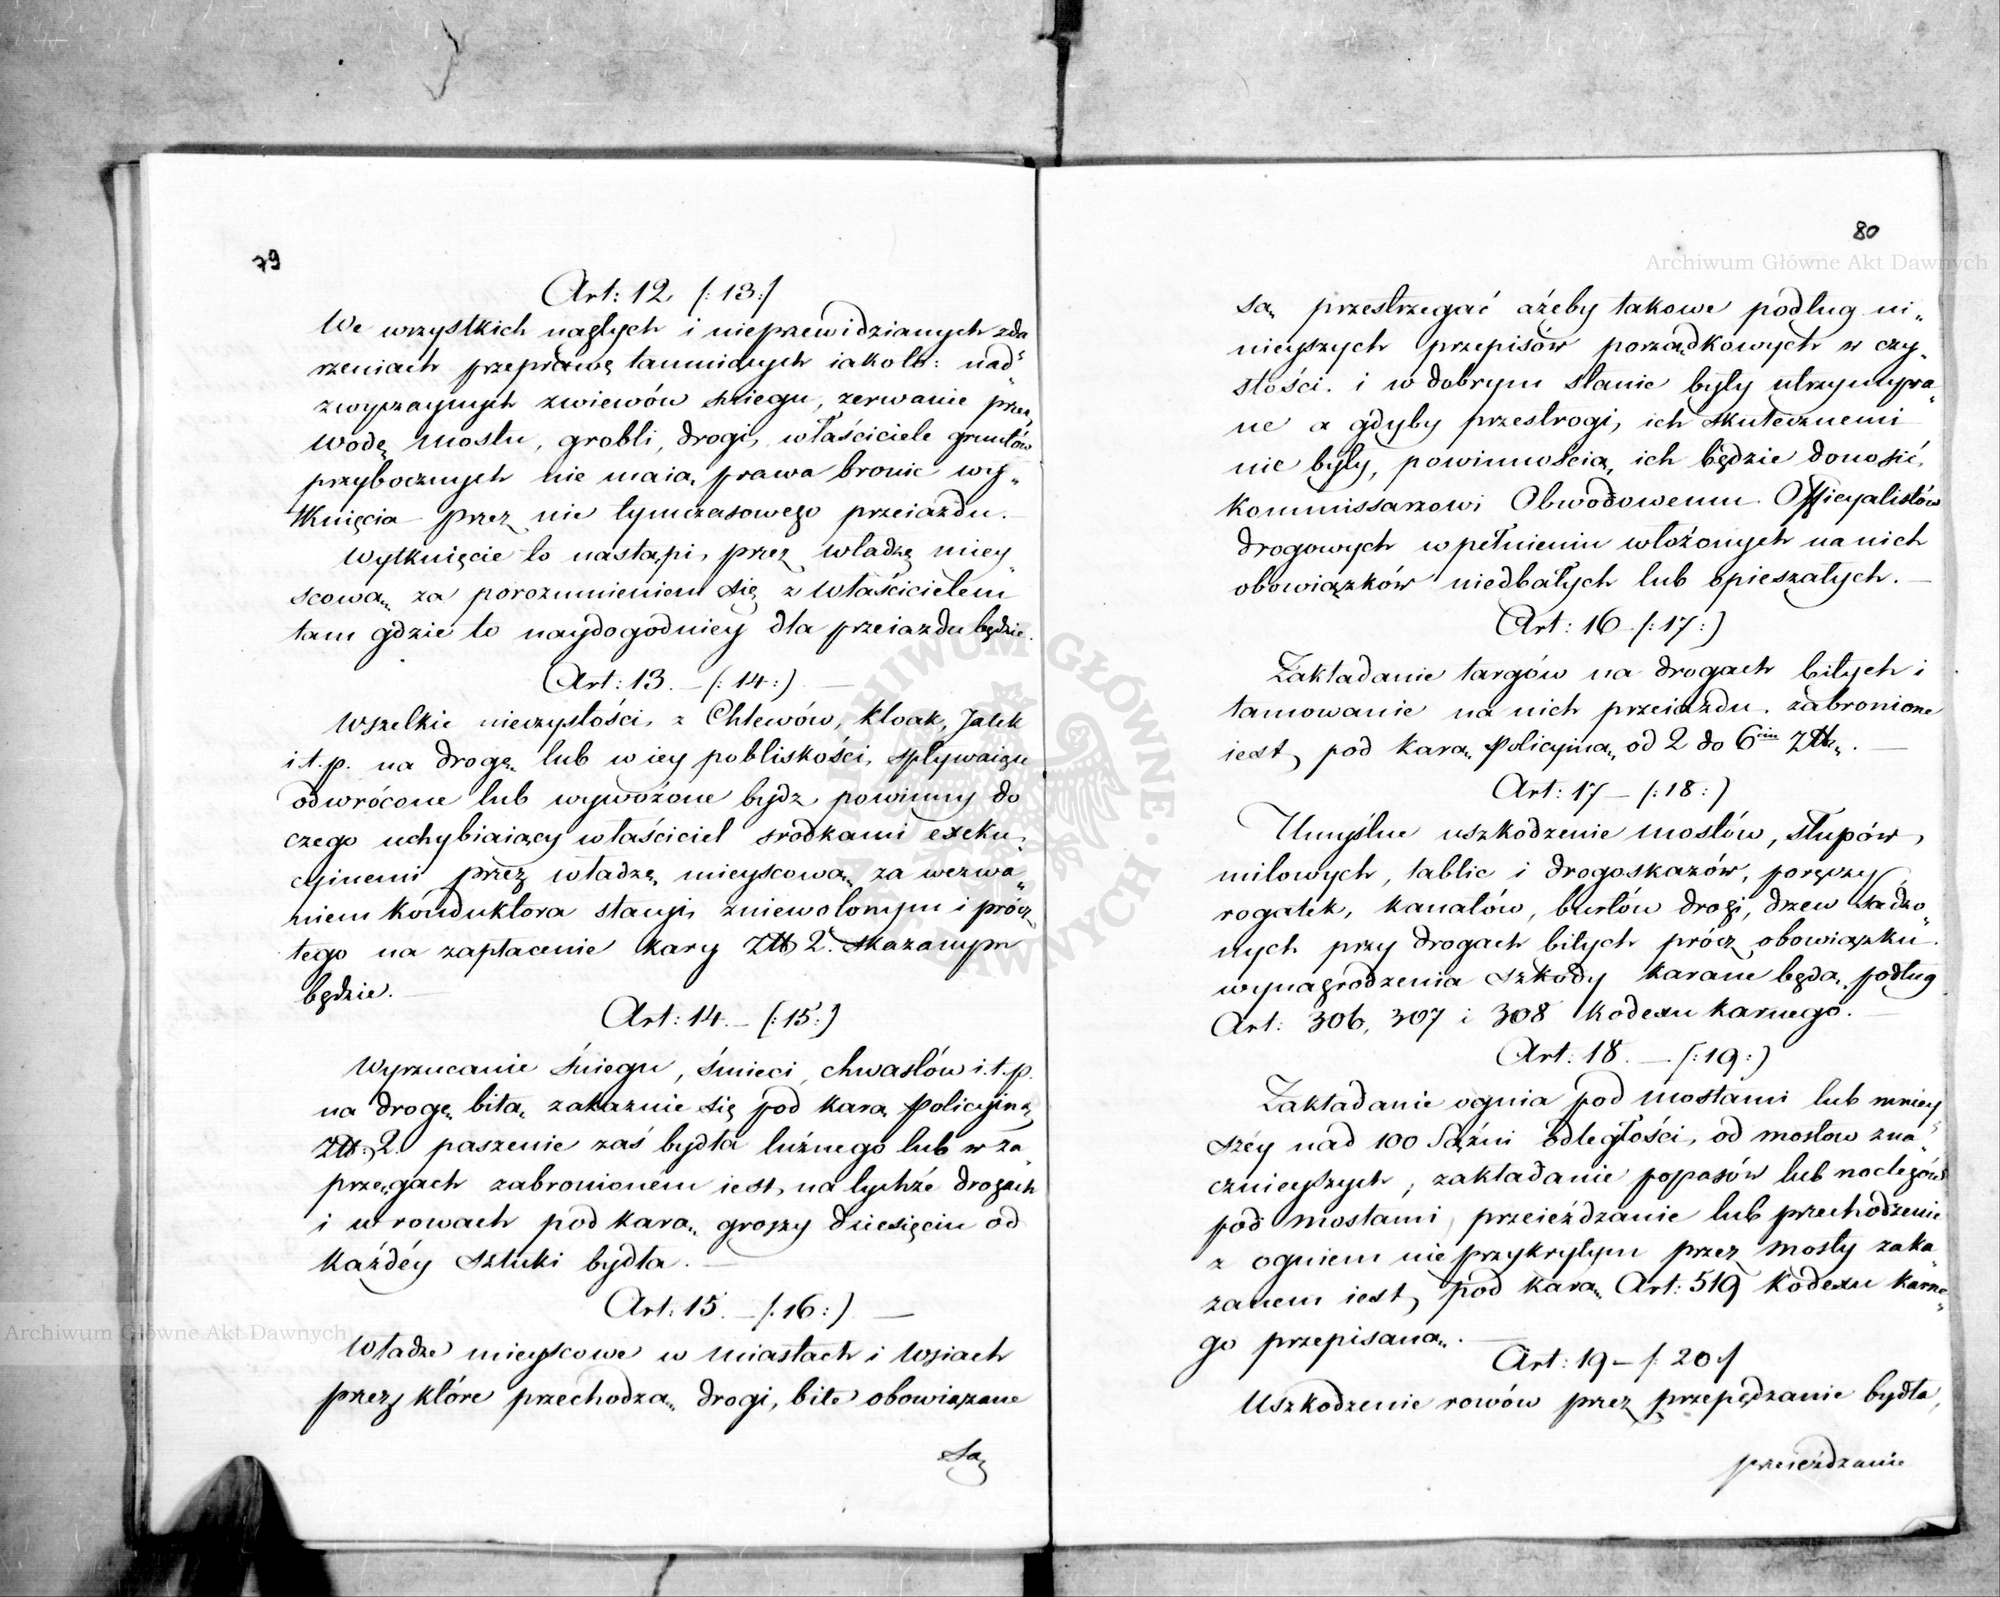 79
Art: 12. /: 13:/
We wszystkich nagłych i nieprzewidzianych zda
rzeniach przeprawę tamuiących iakoto: nad„
zwyczaynych zwiewów śniegu, zerwanie przez
wodę mostu, grobli, drogi, właściciele gruntów
przybocznych nie maią prawa bronić wy„
tknięcia przez nie tymczasowego przeiazdu.
Wytknięcie to nastąpi, przez władzę miey„
scową za porozumieniem się z właścicielem
tam gdzie to naydogodniey dla przeiazdu będzie.
Art: 13. – (: 14 :) –
Wszelkie nieczystości, z Chlewów, kloak, Jatek
i.t.p. na drogę lub w iey pobliskości, spływaiące
odwrócone lub wywożone bydź powinny do
czego uchybiaiący właściciel srodkami exeku„
cyinemi przez władzę mieyscową za wezwa„
niem konduktora stacyi, zniewolonym i prócz
tego na zapłacenie kary Złt 2. skazanym
będzie. –
Art: 14. – (: 15 :)
Wyrzucanie śniegu, śmieci, chwastów i.t.p.
na drogę bitą zakazuie się pod karą Policyiną
Złt: 2. paszenie zaś bydła luźnego lub w za„
przęgach zabronioném iest, na tychże drogach
i w rowach pod karą groszy dziesięciu od
każdéy sztuki bydła. –
Art: 15. – (: 16 :) –
Władze mieyscowe w miastach i wsiach
przez które przechodzą drogi, bite obowiązane
Są
80
są przestrzegać ażeby takowe podług ni„
nieyszych przepisów porządkowych w czy„
stości. i w dobrym stanie były utrzymywa„
ne a gdyby przestrogi, ich skutecznemi
nie były, powinnością ich będzie donosić,
Kommissarzowi Obwodowemu Officyalistów
drogowych w pełnieniu włożonych na nich
obowiązków niedbałych lub opieszałych. –
Art: 16 – (: 17 :)
Zakładanie targów na drogach bitych i
tamowanie na nich przeiazdu. zabronione
iest, pod karą Policyiną od 2 do 6ciu Złt. –
Art: 17 – (: 18 :)
Umyślne uszkodzenie mostów, słupów,
milowych, tablic i drogoskazów, poręczy
rogatek, kanałów, burtów drogi, drzew sadzo„
nych przy drogach bitych prócz obowiązku
wynagrodzenia szkody karane będą podług
Art: 306, 307 i 308 kodexu karnego. –
Art: 18. – (: 19 :)
Zakładanie ognia pod mostami lub mniey
széy nad 100 Sążni odległości, od mostow zna„
cznieyszych, zakładanie popasów lub noclegów
pod mostami, przeieżdzanie lub przechodzenie
z ogniem nieprzykrytym przez mosty zaka„
zanem iest, pod karą Art: 519 kodexu karne„
go przepisaną. –
Art: 19 – /: 20 :/
Uszkodzenie rowów przez przepędzanie bydła,
przeieżdzanie
Archiwum Główne Akt Dawnych
Archiwum Główne Akt Dawnych
ARCHIWUM GŁÓWNE AKT DAWNYCH